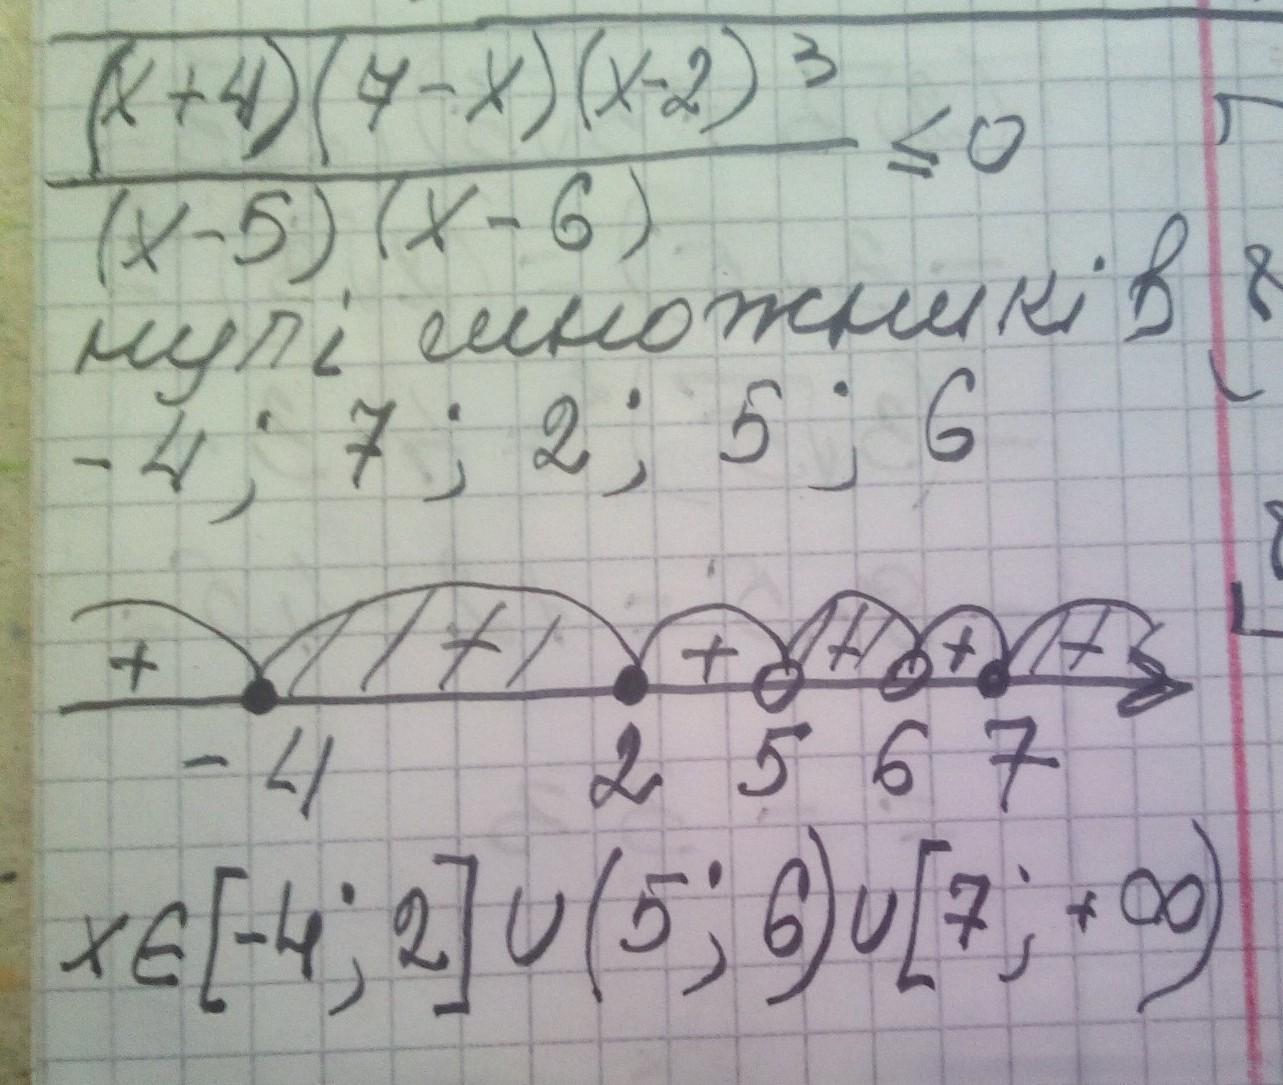 (x+4)(7-x)(x-2)³
≤0
(x-5)(x-6)
нулі множників
-4; 7; 2; 5; 6
+ + + + + +
-4 2 5 6 7
x∈[-4; 2]∪(5; 6)∪[7; +∞)